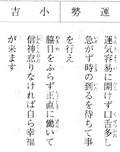 小吉 運勢
運気容易に開けず口舌多し
急がず時の到るを待ちて事
を行え
脇目をふらず正直に働いて
信神怠りなければ自ら幸福
が来ます